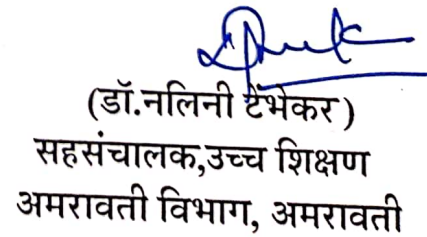 (डॉ.नलिनी टेंभेकर )
सहसंचालक,उच्च शिक्षण
अमरावती विभाग, अमरावती